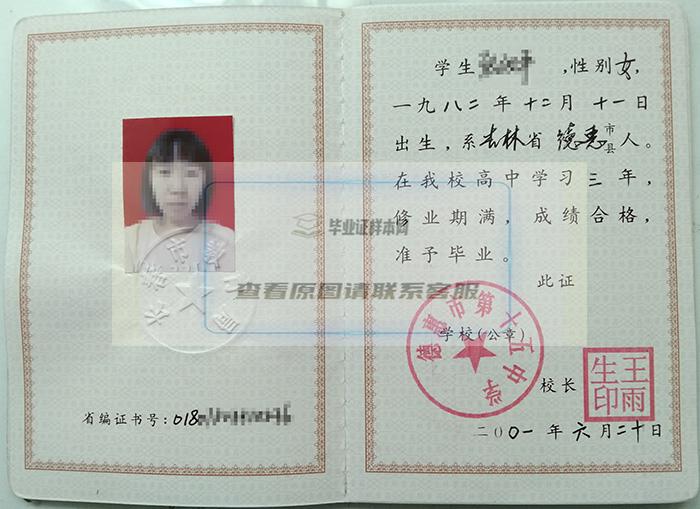 毕业证样本网
查看原图请联系客服
省编证书号:018
学生 ,性别女,
一九八二年十二月十一日
出生,系吉林省德惠市县人。
在我校高中学习三年,
修业期满,成绩合格,
准予毕业。
此证
德惠市第十五中学
学校(公章)
校长
王雨生印
二00一年六月二十日